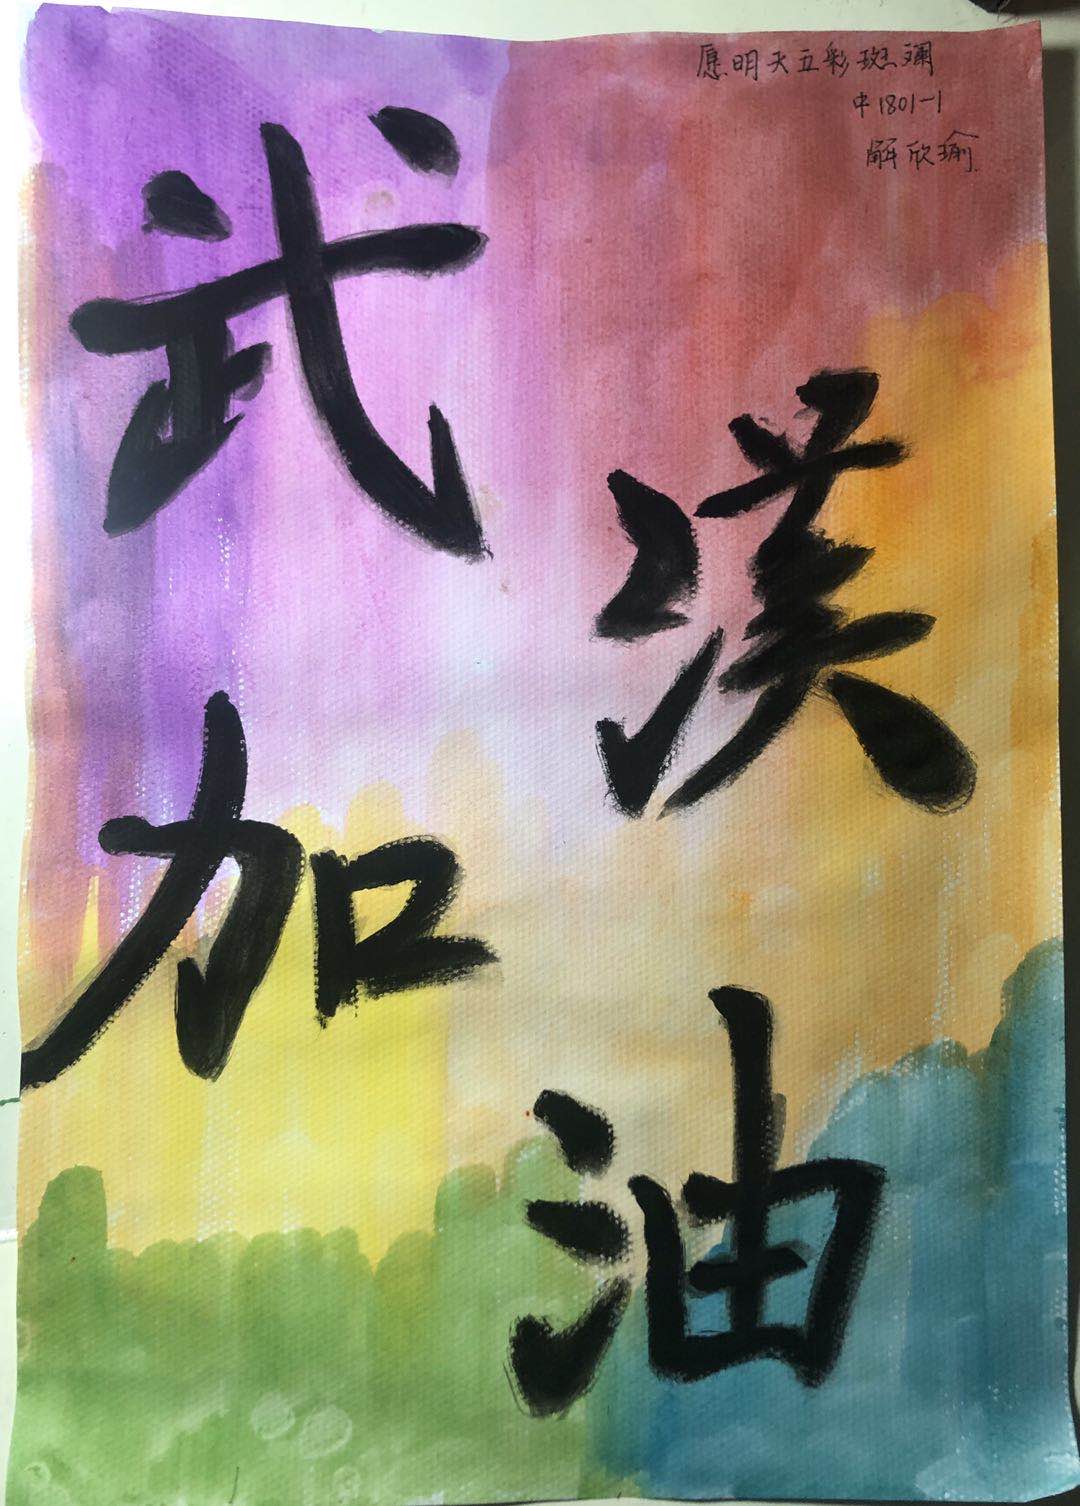 愿明天五彩斑斓
中1801-1
解欣瑜
武
漢
加
油